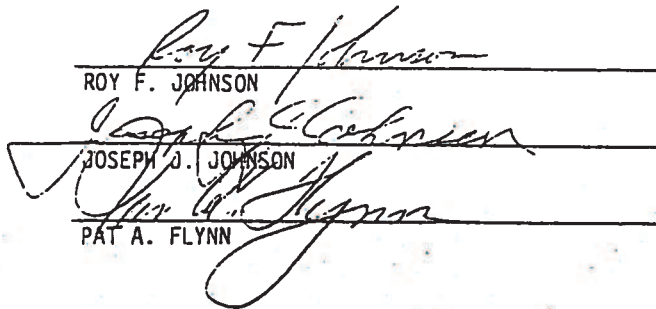 Roy F Johnson
ROY F. JOHNSON
Joseph J. Johnson
JOSEPH J. JOHNSON
Pat A. Flynn
PAT A. FLYNN